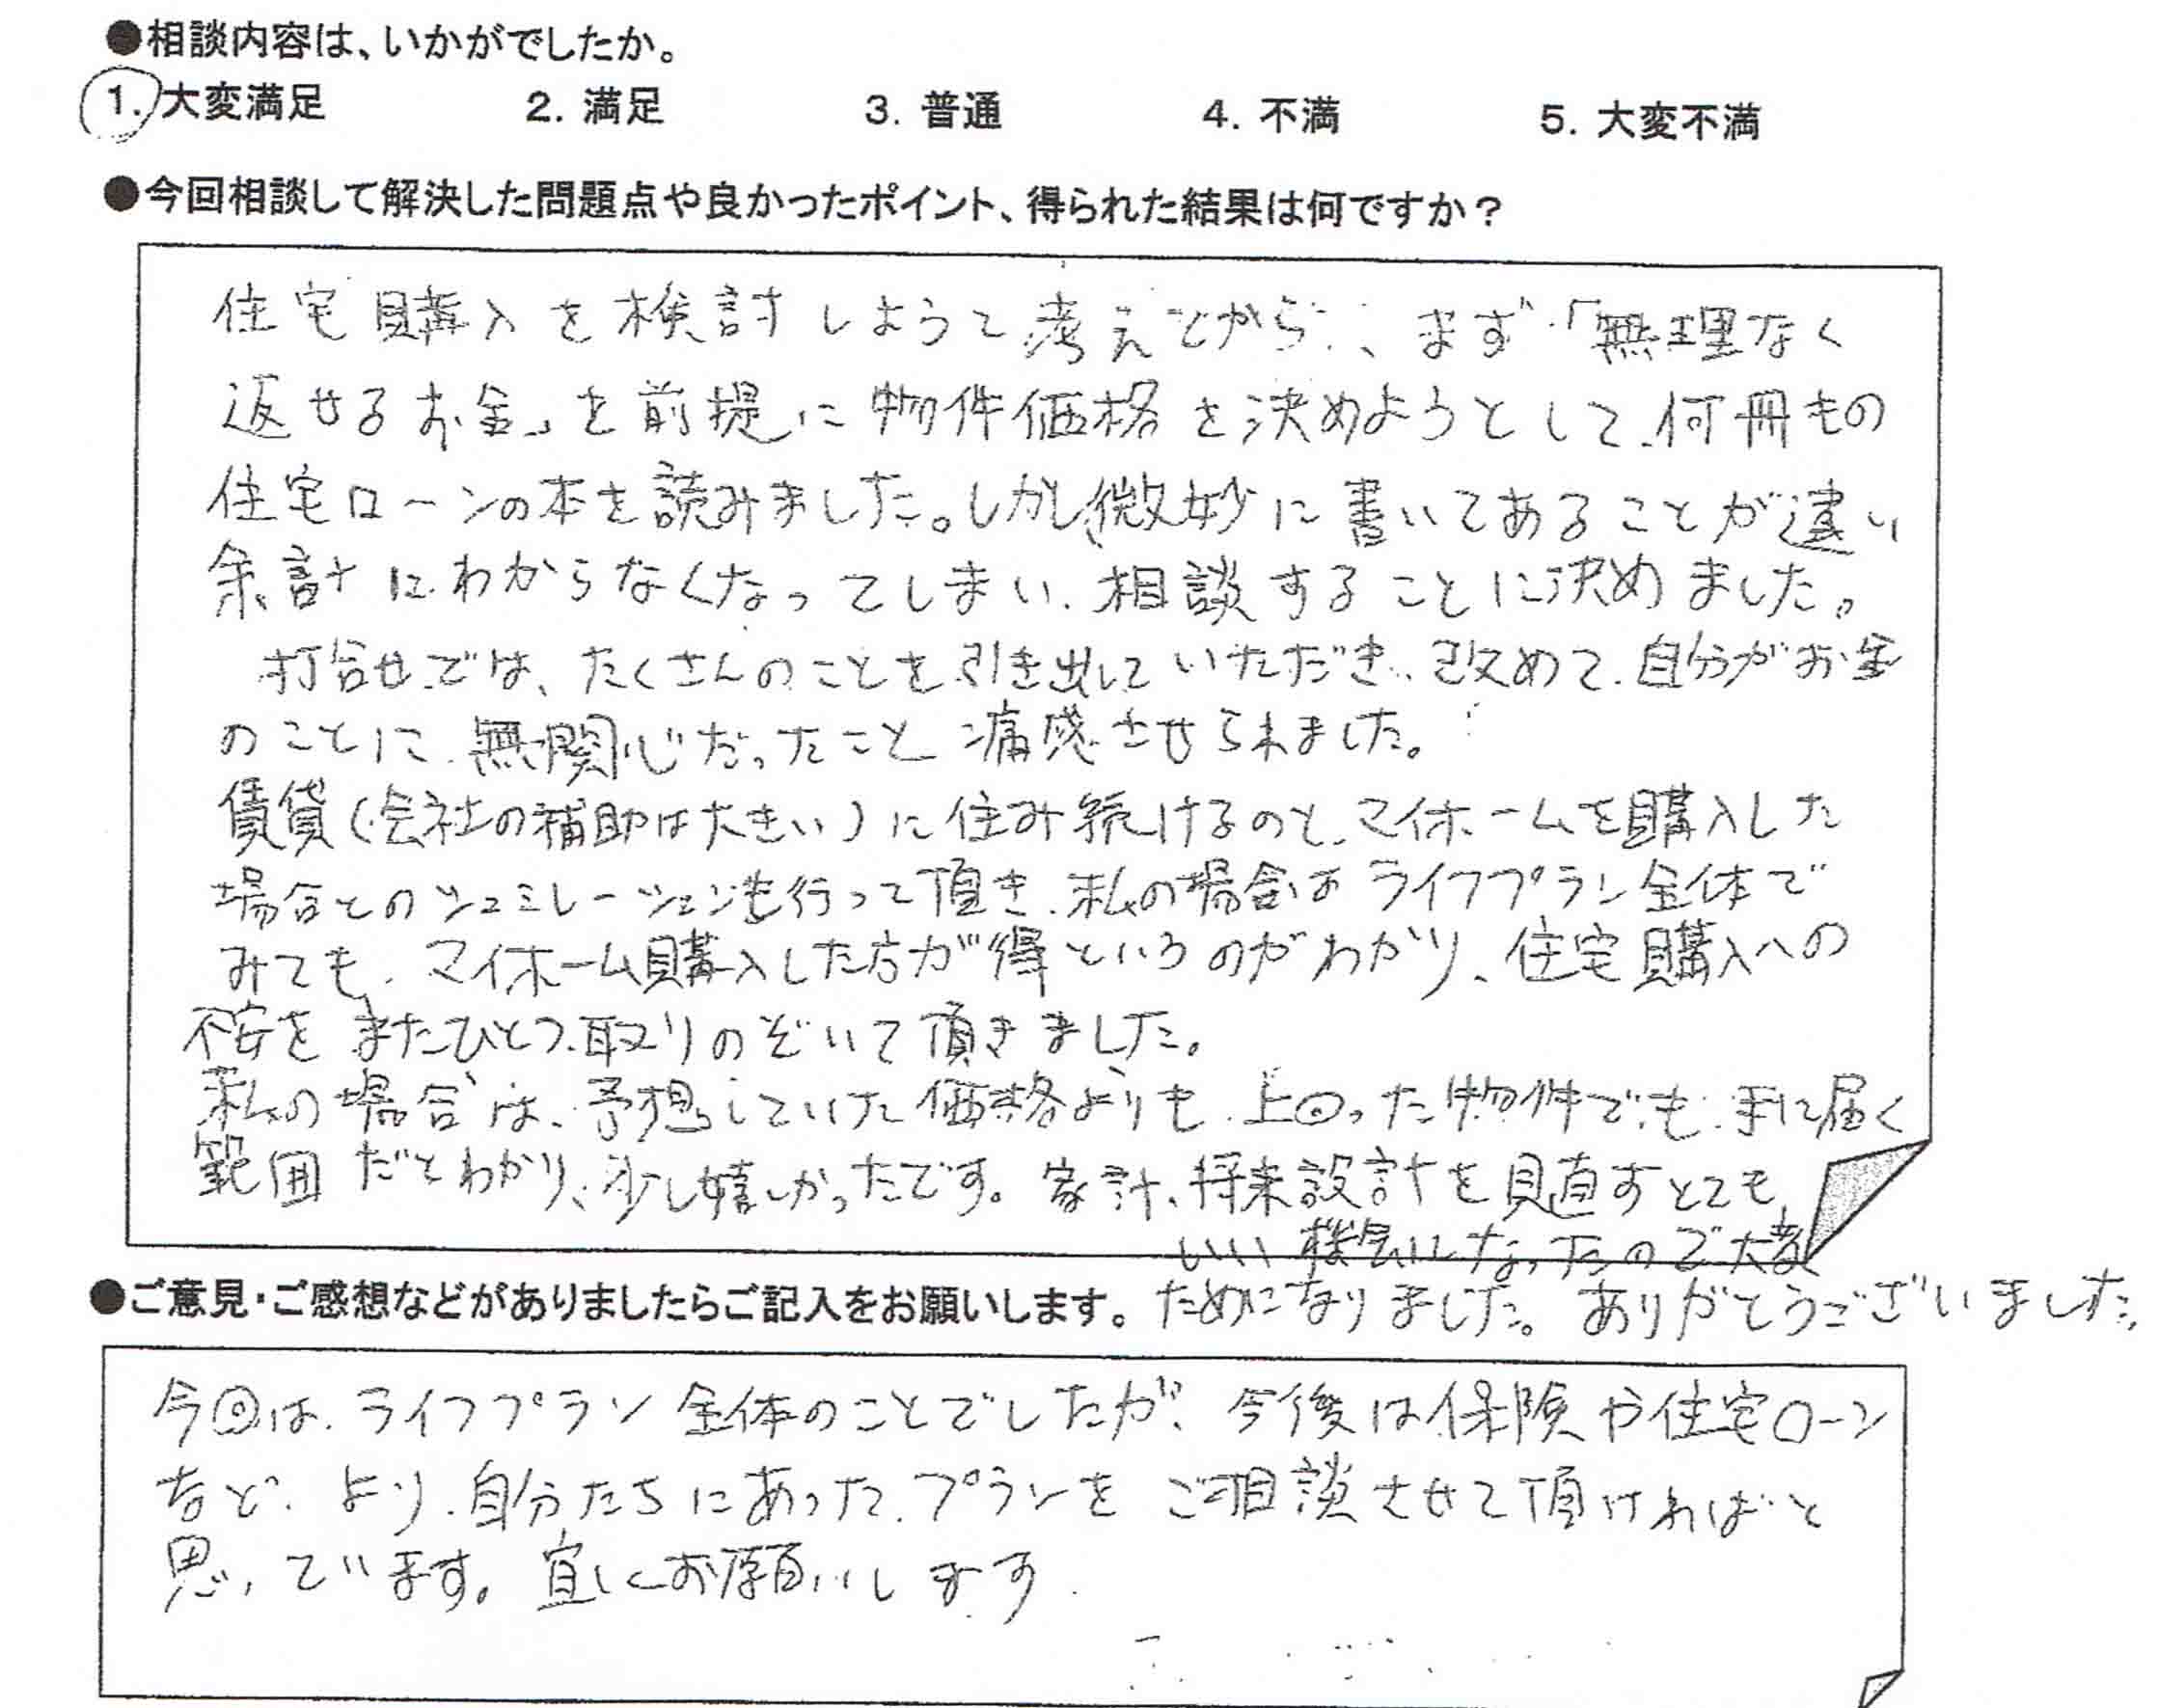 ●相談内容は、いかがでしたか。
1. 大変満足 2. 満足 3. 普通 4. 不満 5. 大変不満
●今回相談して解決した問題点や良かったポイント、得られた結果は何ですか？
住宅購入を検討しようて考えてから、まず「無理なく
返せるお金」を前提に物件価格を決めようとして、何冊もの
住宅ローンの本を読みました。しかし、微妙に書いてあることが違い
余計にわからなくなってしまい、相談することに決めました。
打合せでは、たくさんのことを引き出していただき、改めて、自分がお金
のことに無関心だったこと痛感させられました。
賃貸(会社の補助は大きい)に住み続けるのと、マイホームを購入した
場合とのシュミレーションも行って頂き、私の場合はライフプラン全体で
みても、マイホーム購入した方が得というのがわかり、住宅購入への
不安をまたひとつ取りのぞいて頂きました。
私の場合は、予想していた価格よりも、上回った物件でも、手に届く
範囲だとわかり、少し嬉しかったです。家計、将来設計を見直すとても
いい機会になったので大変
●ご意見・ご感想などがありましたらご記入をお願いします。 ためになりました。ありがとうございました。
今回は、ライフプラン全体のことでしたが、今後は保険や住宅ローン
など、より、自分たちにあったプランをご相談させて頂ければと
思っています。宜しくお願いします